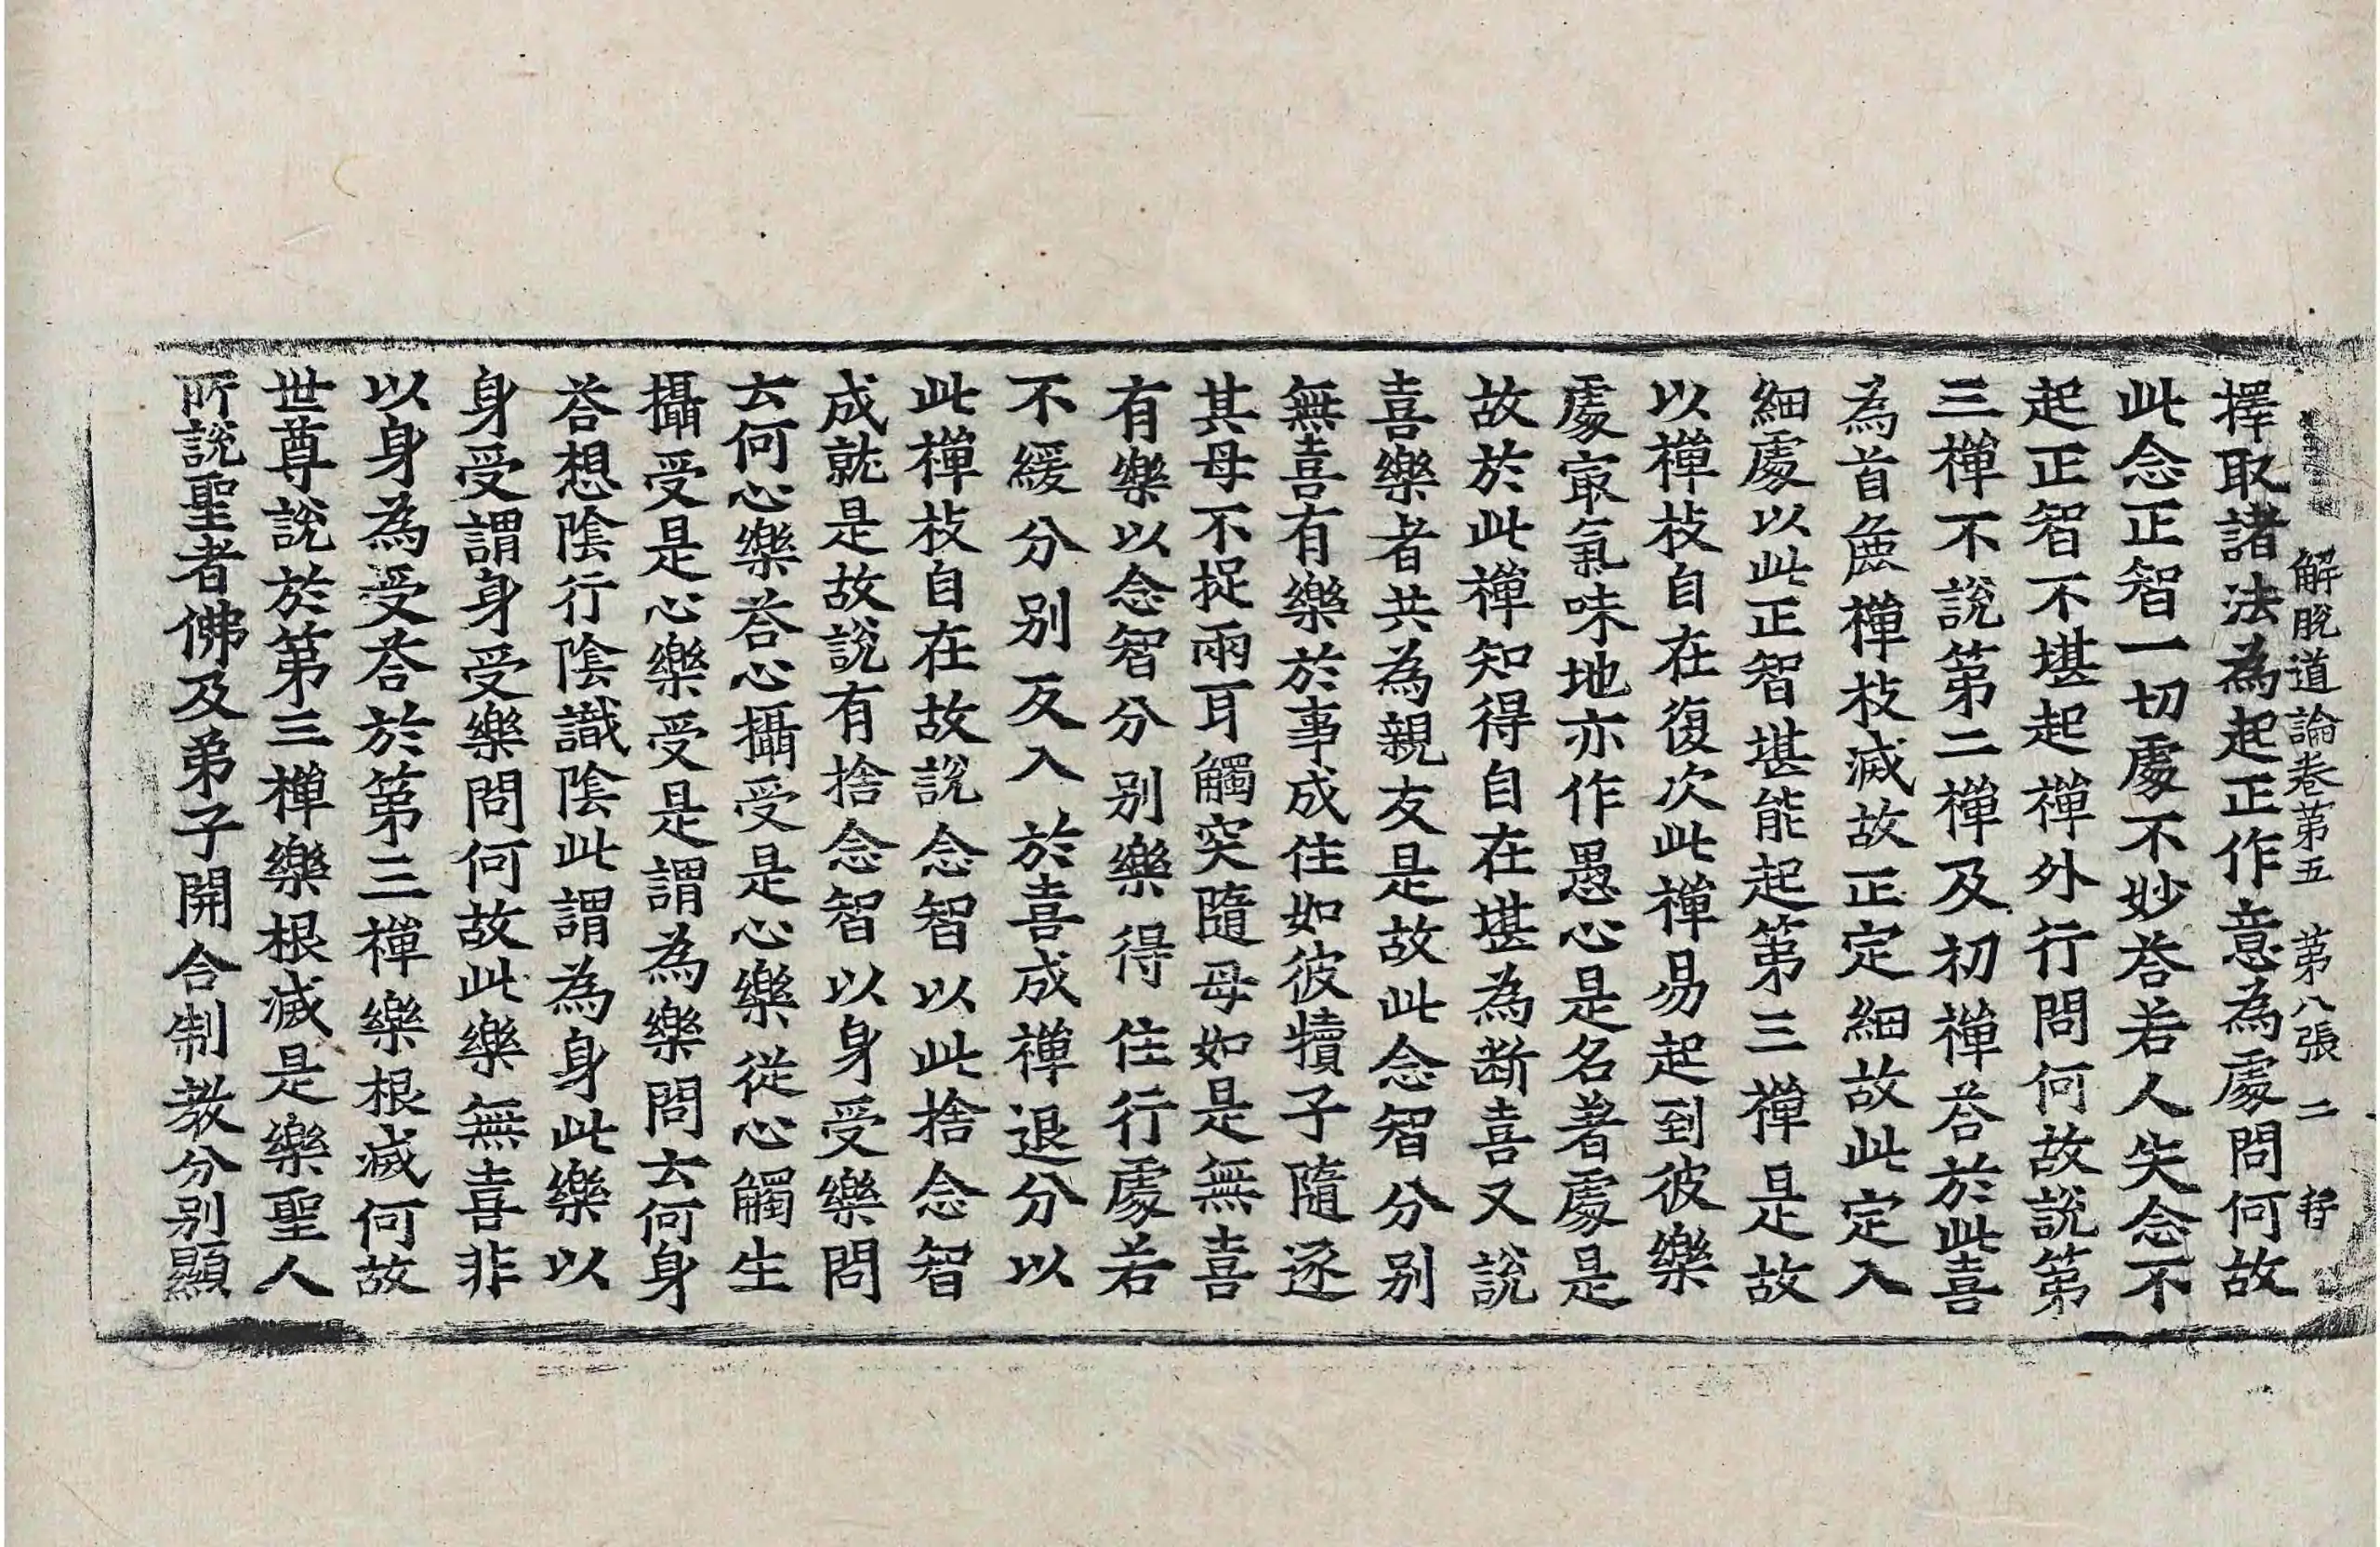 解脫道論卷第五 第八張 二
擇取諸法為起正作意為處問何故
此念正智一切處不妙荅若人失念不
起正智不堪起禪外行問何故說第
三禪不說第二禪及初禪荅於此喜
為首麁禪枝滅故正定細故此定入
細處以此正智堪能起第三禪是故
以禪枝自在復次此禪易起到彼樂
處㝡氣味地亦作愚心是名著處是
故於此禪知得自在堪為断喜又說
喜樂者共為親友是故此念智分别
無喜有樂於事成住如彼犢子隨逐
其母不捉兩耳觸突隨母如是無喜
有樂以念智分别樂得住行處若
不緩分别反入於喜成禪退分以
此禪枝自在故說念智以此捨念智
成就是故說有捨念智以身受樂問
云何心樂荅心攝受是心樂從心觸生
攝受是心樂受是謂為樂問云何身
荅想陰行陰識陰此謂為身此樂以
身受謂身受樂問何故此樂無喜非
以身為受荅於第三禪樂根滅何故
世尊說於第三禪樂根滅是樂聖人
所說聖者佛及弟子開合制教分别顯